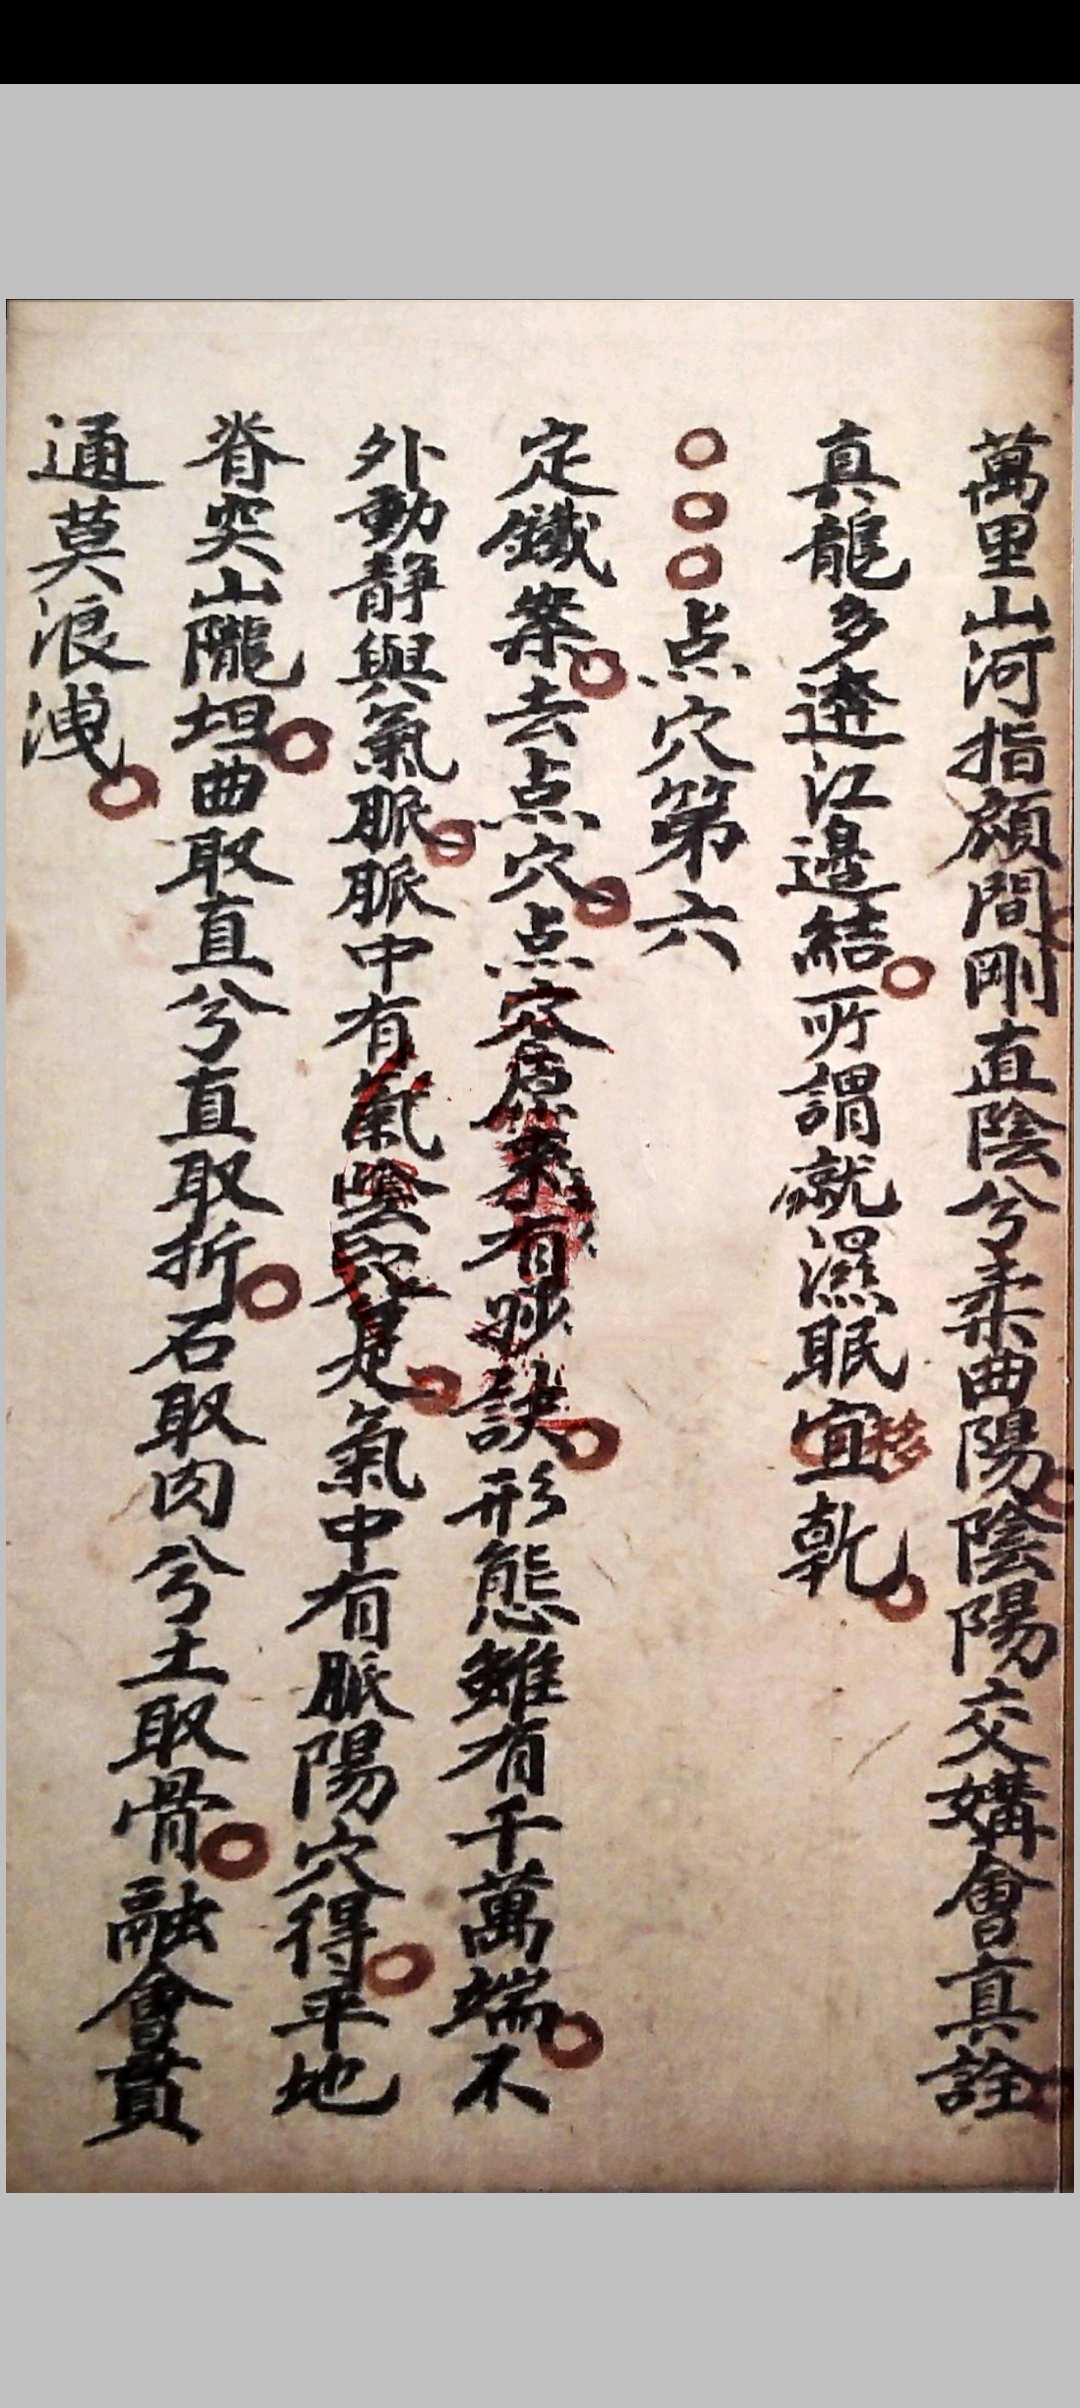 萬里山河指顧間剛直陰兮柔曲陽陰陽交媾會真詮
真龍多遶江邊結所謂就濕眠宜乾
移
○○○点穴第六
定鐵案去点穴点穴原來有妙訣形態雖有千萬端不
外動靜與氣脈脈中有氣陰穴是氣中有脈陽穴得平地
脊突山隴坦曲取直兮直取折石取肉兮土取骨融會貫
通莫浪洩